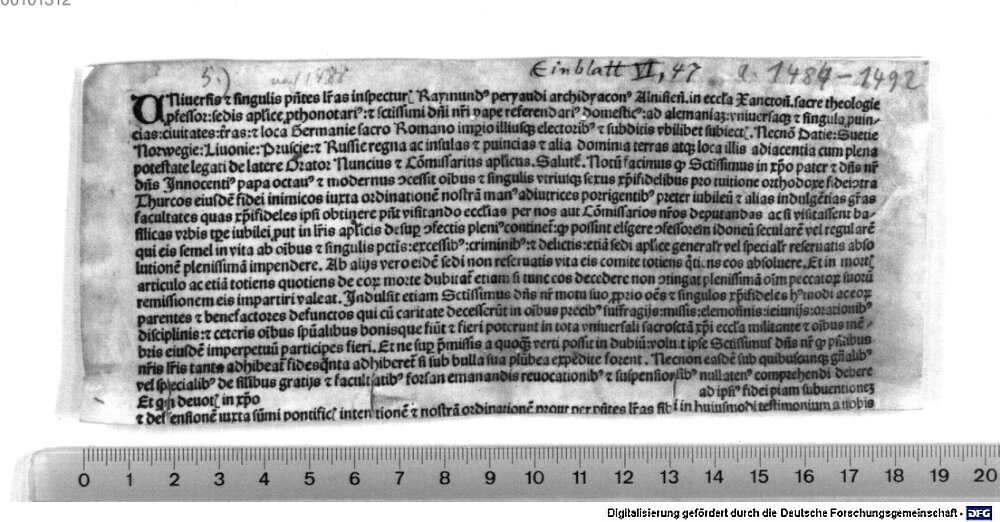 00101312
5.)
Einblatt VI, 47
a. 1484-1492
Uniuersis ⁊ singulis pn̄tes lr̄as inspecturꝭ Raymundꝰ peryaudi archidyaconꝰ Alnisieñ. in eccl̄a Xanctoñ. sacre theologie
ꝓfessor: sedis aplice ꝓthonotariꝰ: ⁊ sctissimi dn̄i nr̄i pape referendariꝰ domesticꝰ: ad alemaniaꝫ: vniuersasqꝫ ⁊ singula puin-
cias: ciuitates: tr̄as: ⁊ loca Germanie sacro Romano impio illiusqꝫ electoribꝰ ⁊ subditis vbilibet subiectꝭ. Necnō Datie: Suetie
Norwegie: Liuonie: Pruscie: ⁊ Russie regna ac insulas ⁊ puincias ⁊ alia dominia terras atqꝫ loca illis adiacentia cum plena
potestate legati de latere Orator Nuncius ⁊ Cōmissarius aplicus. Salutē. Notū facimus ꝙ Sctissimus in xp̄o pater ⁊ dn̄s nr̄
dn̄s Innocentiꝰ papa octauꝰ ⁊ modernus ꝯcessit oībus ⁊ singulis vtriusqꝫ sexus xp̄ifidelibus pro tuitione orthodoxe fidei ꝯtra
Thurcos eiusdē fidei inimicos iuxta ordinationē nostrā manꝰ adiutrices porrigentibꝰ preter iubileū ⁊ alias indulgētias gr̄as
facultates quas xp̄ifideles ipsi obtinere pn̄t visitando ecclīas per nos aut Cōmissarios nr̄os deputandas ac si visitassent ba-
silicas vrbis tꝑe iubilei, put in lr̄is aplicis desuꝑ ꝯfectis pleniꝰ continet᷑: ꝙ possint eligere ꝯfessorem idoneū secularē vel regularē
qui eis semel in vita ab oībus ⁊ singulis pctīs: excessibꝰ: criminibꝰ: ⁊ delictis: etiā sedi aplice generalr̄ vel specialr̄ reseruatis abso
lutionē plenissimā impendere. Ab alijs vero eidē sedi non reseruatis vita eis comite totiens quotiens eos absoluere. Et in mortꝭ
articulo ac etiā totiens quotiens de eoꝝ morte dubitat᷑ etiam si tunc eos decedere non ꝯtingat plenissimā oīm peccatoꝝ suoꝝ
remissionem eis impartiri valeat. Indulsit etiam Sctissimus dn̄s nr̄ motu suo ꝓprio oēs ⁊ singulos xp̄ifideles hꝰmodi ac eoꝝ
parentes ⁊ benefactores defunctos qui cū caritate decesserūt in oībus precibꝰ suffragijs: missis: elemosinis: ieiunijs: orationibꝰ
disciplinis: ⁊ ceteris oībus spūalibus bonisque fiūt ⁊ fieri poterunt in tota vniuersali sacrosctā xp̄i eccl̄a militante ⁊ oībus mē-
bris eiusdē imperpetuū participes fieri. Et ne suꝑ p̄missis a quoqꝫ verti possit in dubiū: voluit ipse Sctissimus dn̄s nr̄ ꝙ pn̄tibus
nr̄is lr̄is tanta adhibeat᷑ fides quāta adhiberet᷑ si sub bulla sua plūbea expedite forent. Necnon easdē sub quibuscunqꝫ gn̄alibꝰ
vel specialibꝰ de similibus gratijs ⁊ facultatibꝰ forsan emanandis reuocationibꝰ ⁊ suspensionibꝰ nullatenꝰ comprehendi debere
Et qꝛ deuotꝭ in xp̄o ad ipsiꝰ fidei piam subuentionē
⁊ defensionē iuxta sūmi pontificꝭ intentionē ⁊ nostrā ordinationē prout per pn̄tes lr̄as sibi in huiusmodi testimonium a nobis
0 1 2 3 4 5 6 7 8 9 10 11 12 13 14 15 16 17 18 19 20
Digitalisierung gefördert durch die Deutsche Forschungsgemeinschaft - DFG